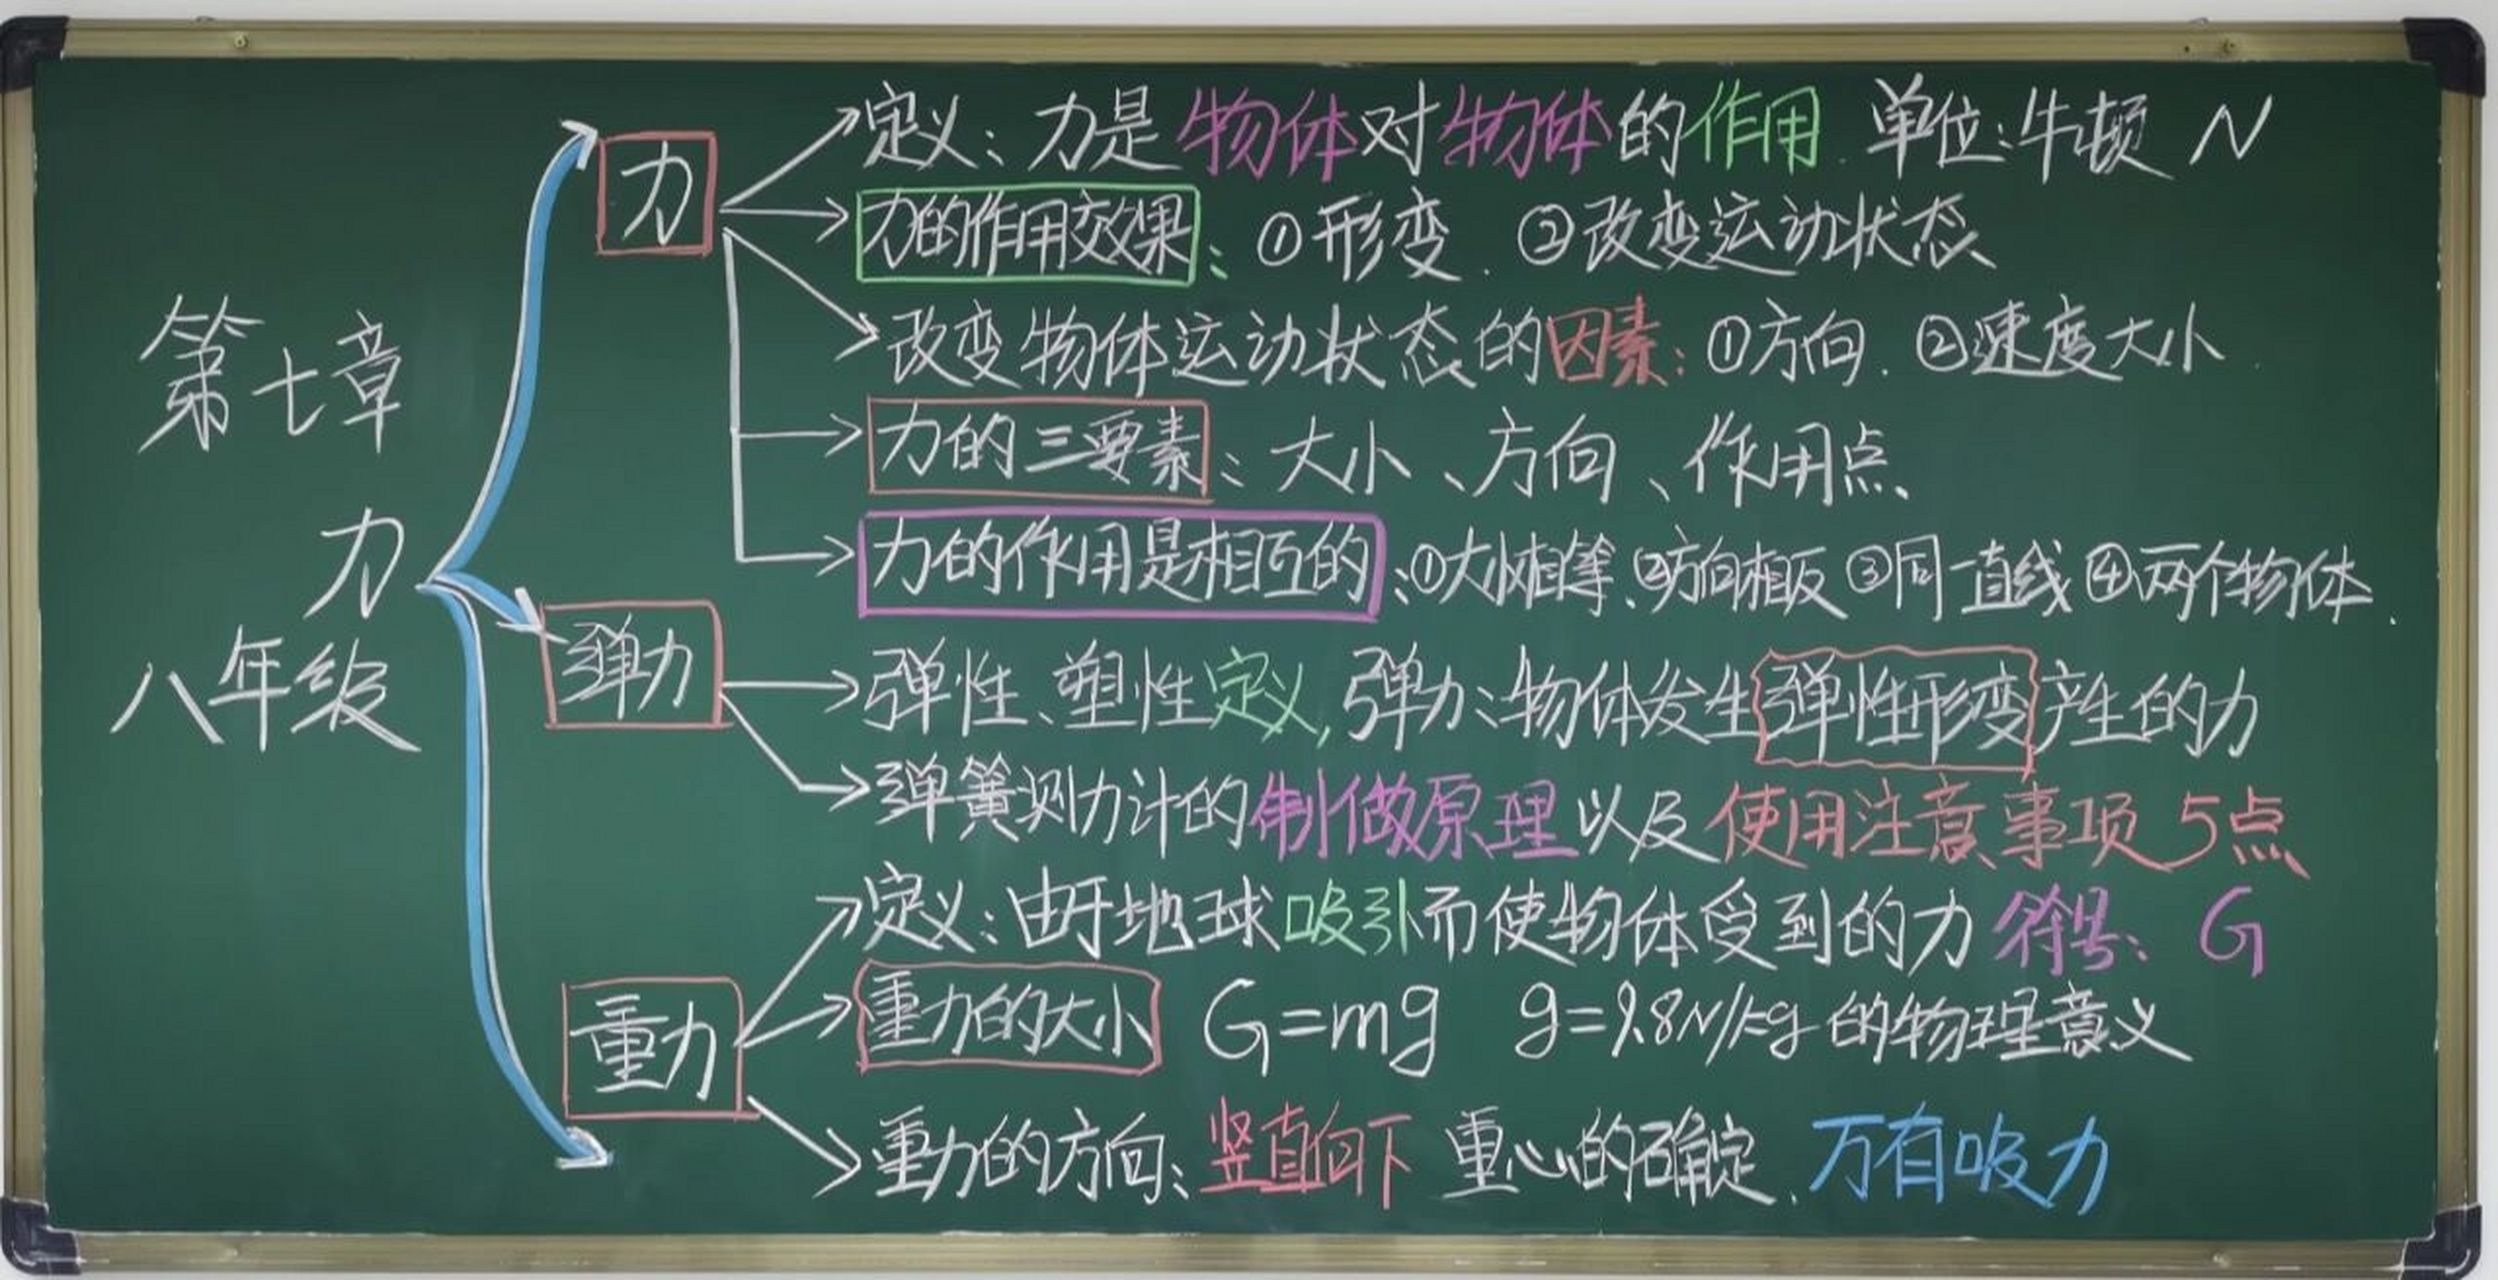 第七章
力
八年级
力
定义：力是物体对物体的作用. 单位:牛顿 N
力的作用效果：①形变. ②改变运动状态
改变物体运动状态的因素：①方向. ②速度大小.
力的三要素：大小、方向、作用点、
力的作用是相互的：①大小相等.②方向相反③同一直线④两个物体.
弹力
弹性、塑性定义,弹力：物体发生弹性形变产生的力
弹簧测力计的制做原理以及使用注意事项5点
重力
定义：由于地球吸引而使物体受到的力 符号：G
重力的大小 G=mg g=9.8N/kg的物理意义
重力的方向：竖直向下 重心的确定、万有吸力